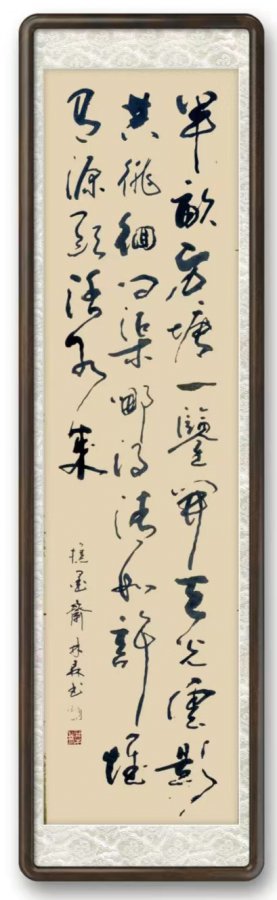 半畝方塘一鑒開天光雲影
共徘徊問渠哪得清如許惟
有源頭活水來
墨齋林森书